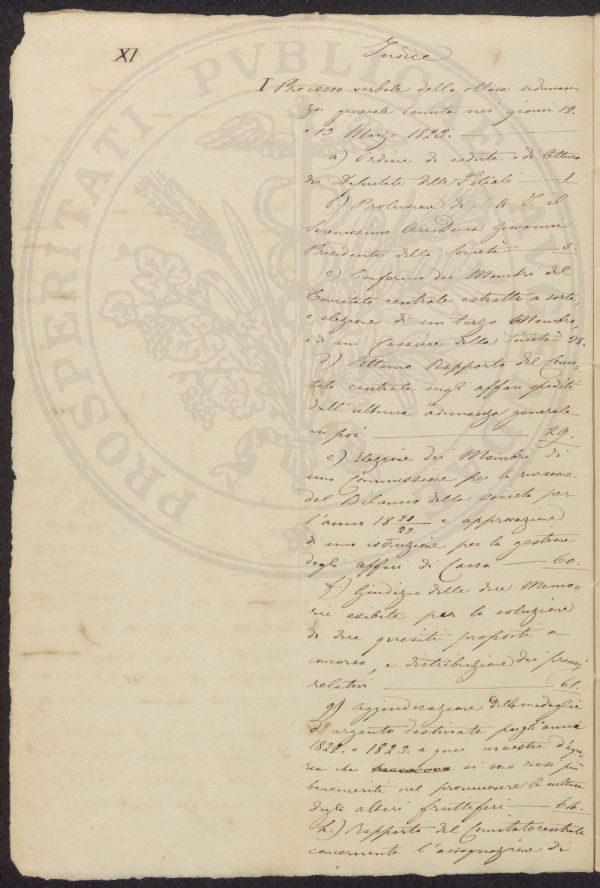 XI
Indice
I Processo verbale della ottava adunan-
za generale tenuta nei giorni 12.
e 13 Marzo 1823.
a) Ordine di seduta e di lettura
dei Deputati delle Filiali — 1
b) Prolusione di S. A. I. il
Serenissimo Arciduca Giovanni
Presidente della Società — 5.
c) Conferma dei Membri del
Comitato centrale estratti a sorte,
e elezione di un terzo Membro,
e di un Cassiere della Società — 28.
d) Settimo Rapporto del Comi-
tato centrale sugl' affari spediti
dall' ultima adunanza generale
in poi — 29.
e) Elezione dei Membri di
una Commissione per la revisione
del Bilancio della società per
l'anno 1821/22 e approvazione
di una istruzione per la gestione
degli affari di Cassa — 60.
f.) Giudizio delle due Memo-
rie esibite per la soluzione
di due quesiti proposti a
concorso, e distribuzione dei premj
relativi — 61.
g) Aggiudicazione delle medaglie
d'argento destinate pegli anni
1822. e 1823. a quei maestri
che si sono resi più
benemeriti nel promuovere la cultura
degli alberi fruttiferi — 64.
h.) Rapporto del Comitato centrale
concernente l'assegnazione di
PROSPERITATI PVBLICAE